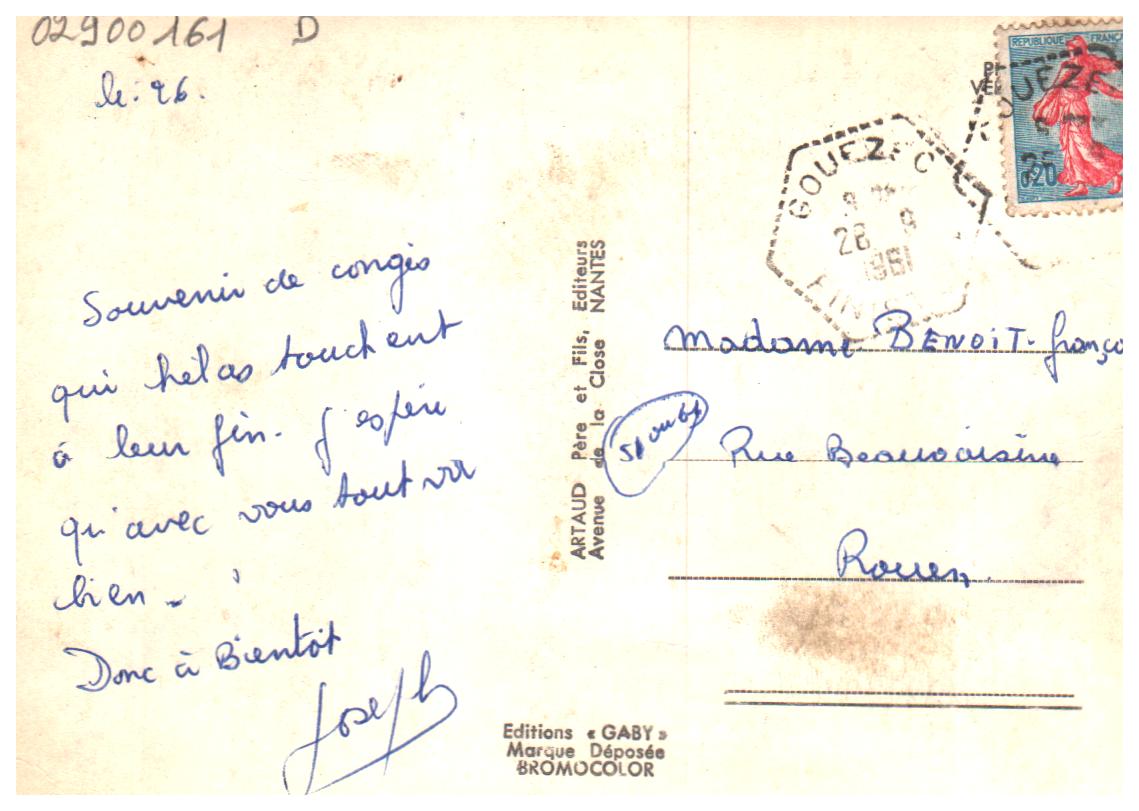 02900161 D
le: 26.
Souvenir de congés
qui hélas touchent
à leur fin. J'espère
qu'avec vous tout va
bien.
Donc à Bientôt
Joseph
ARTAUD Père et Fils, Editeurs
Avenue de la Close NANTES
Editions « GABY »
Marque Déposée
BROMOCOLOR
REPUBLIQUE FRANÇA
0,20
GOUEZEC
26
GOUEZEC
26 9
1961
Madame BENOIT-franço
51 ou 61
Rue Beauvoisine
Rouen.